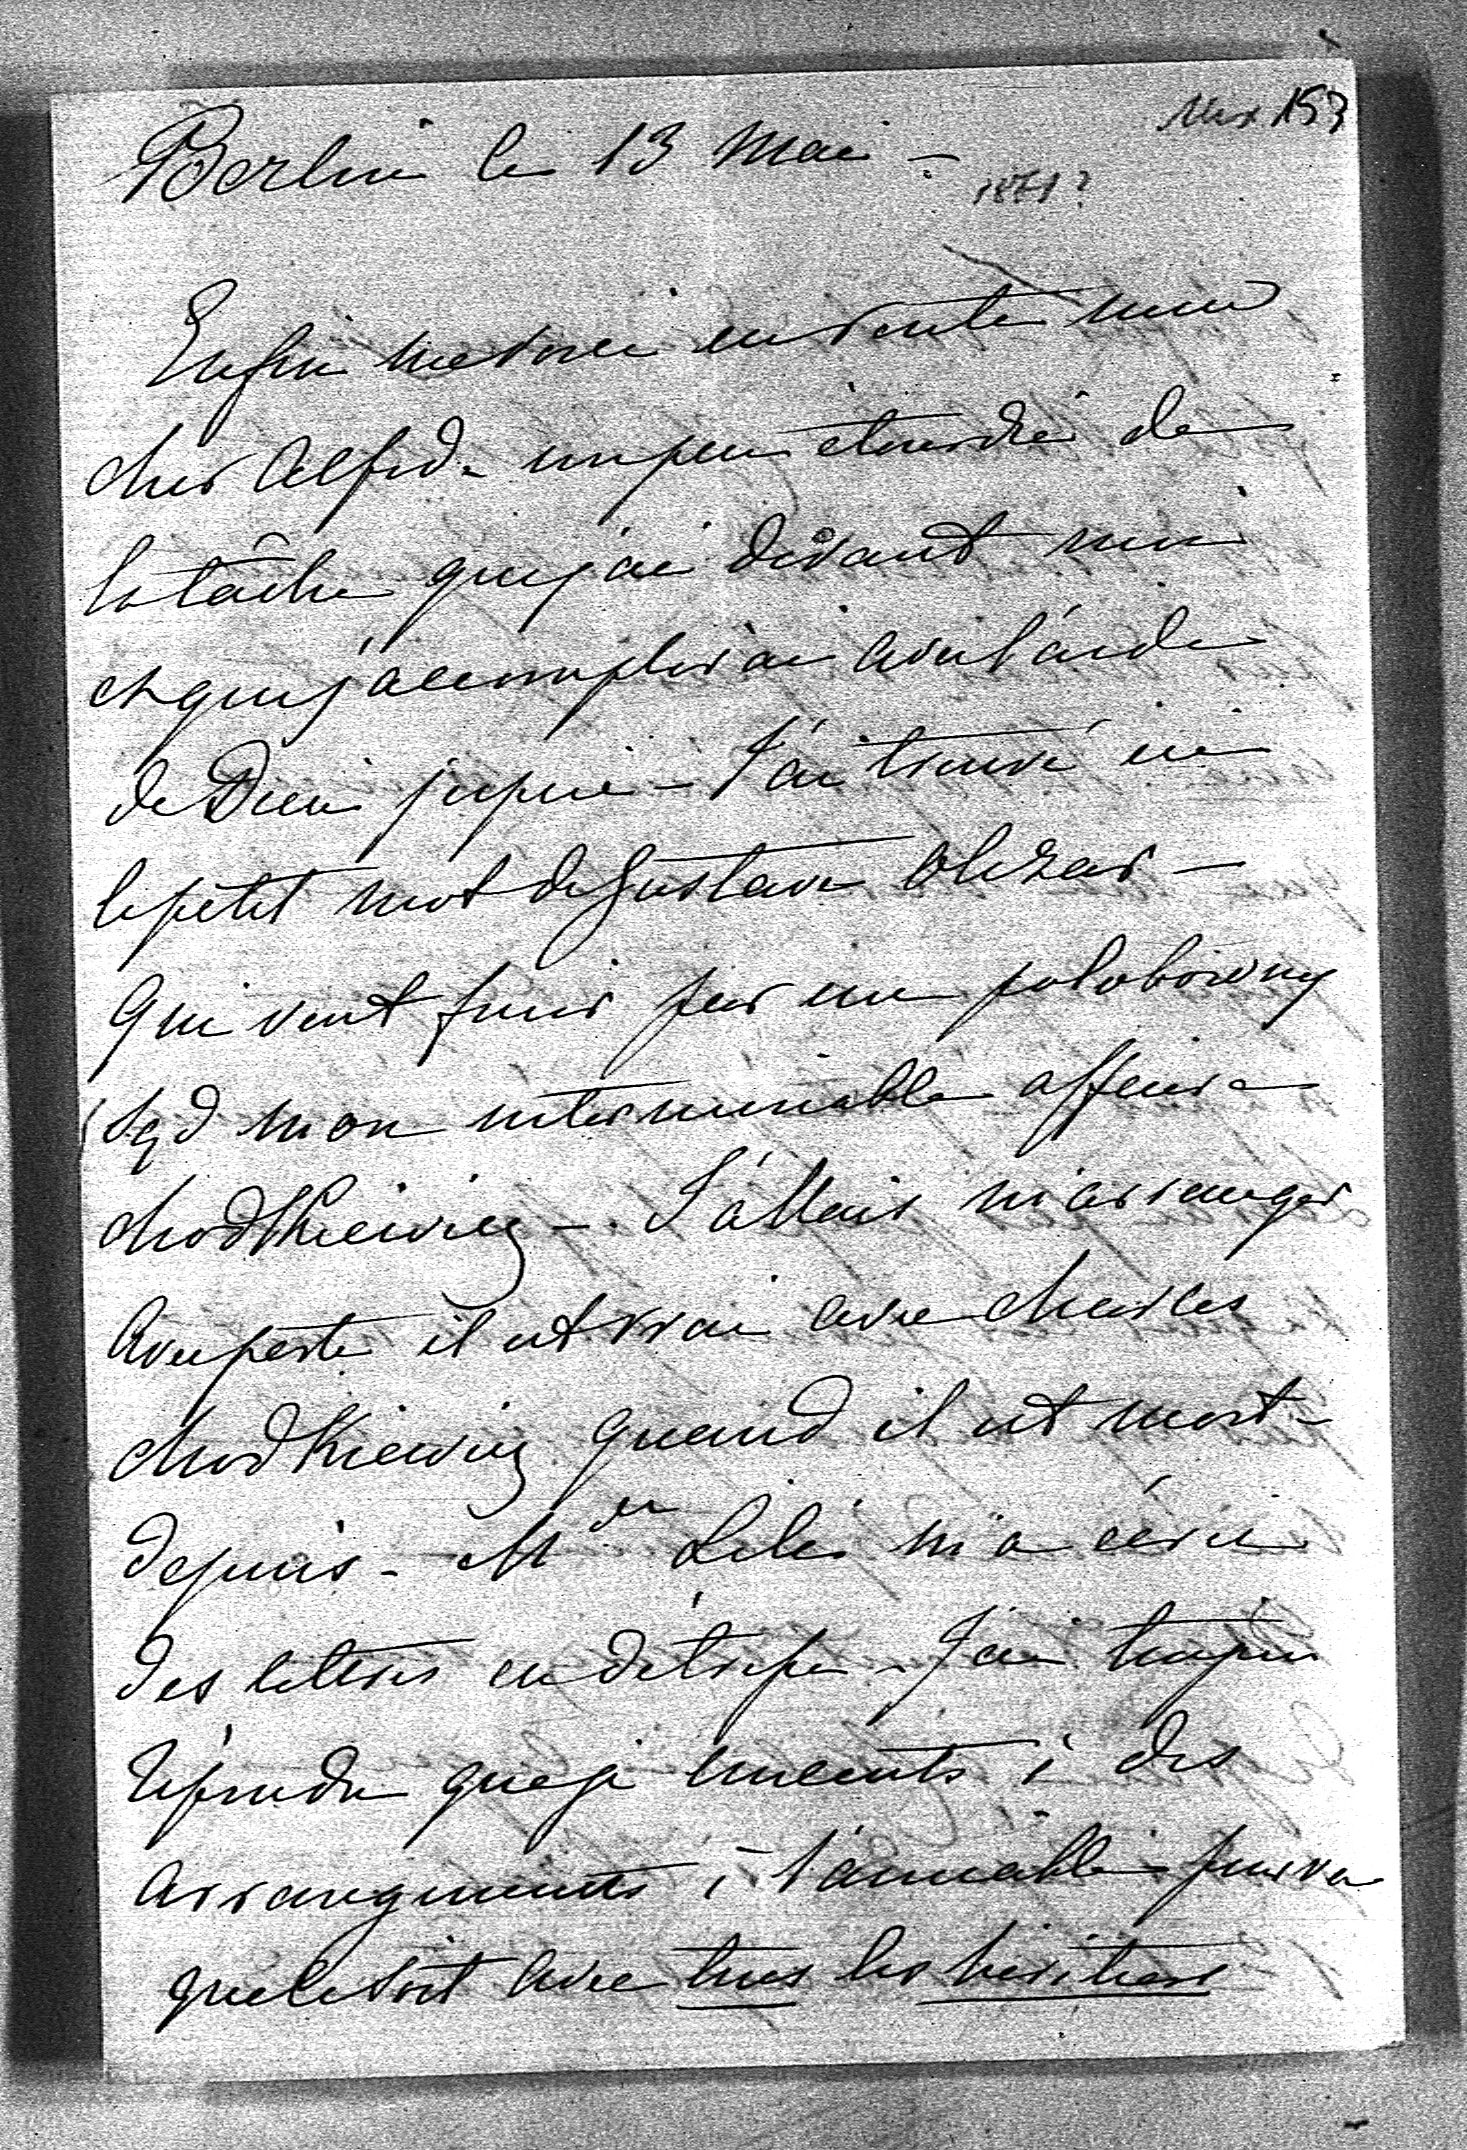 Berlin le 13 Mai –
187 ?
153
Enfin me voici en route mon
cher Alfred – un peu étourdie de
la tâche que j'ai devant moi
et que j'accomplirai avec l'aide
de Dieu j'espère – J'ai trouvé ici
le petit mot de Gustave Olizar –
Qui veut finir par un polobowny
Sąd mon interminable affaire
Chodkiewicz – J'allais m'arranger
avec perte il est vrai avec Charles
Chodkiewicz quand il est mort –
depuis – Lili m'a écrit
des lettres en détresse – J'ai toujours
répondu que je consents à des
arrangements à l'amiable pourvu
que ce soit avec tous les héritiers